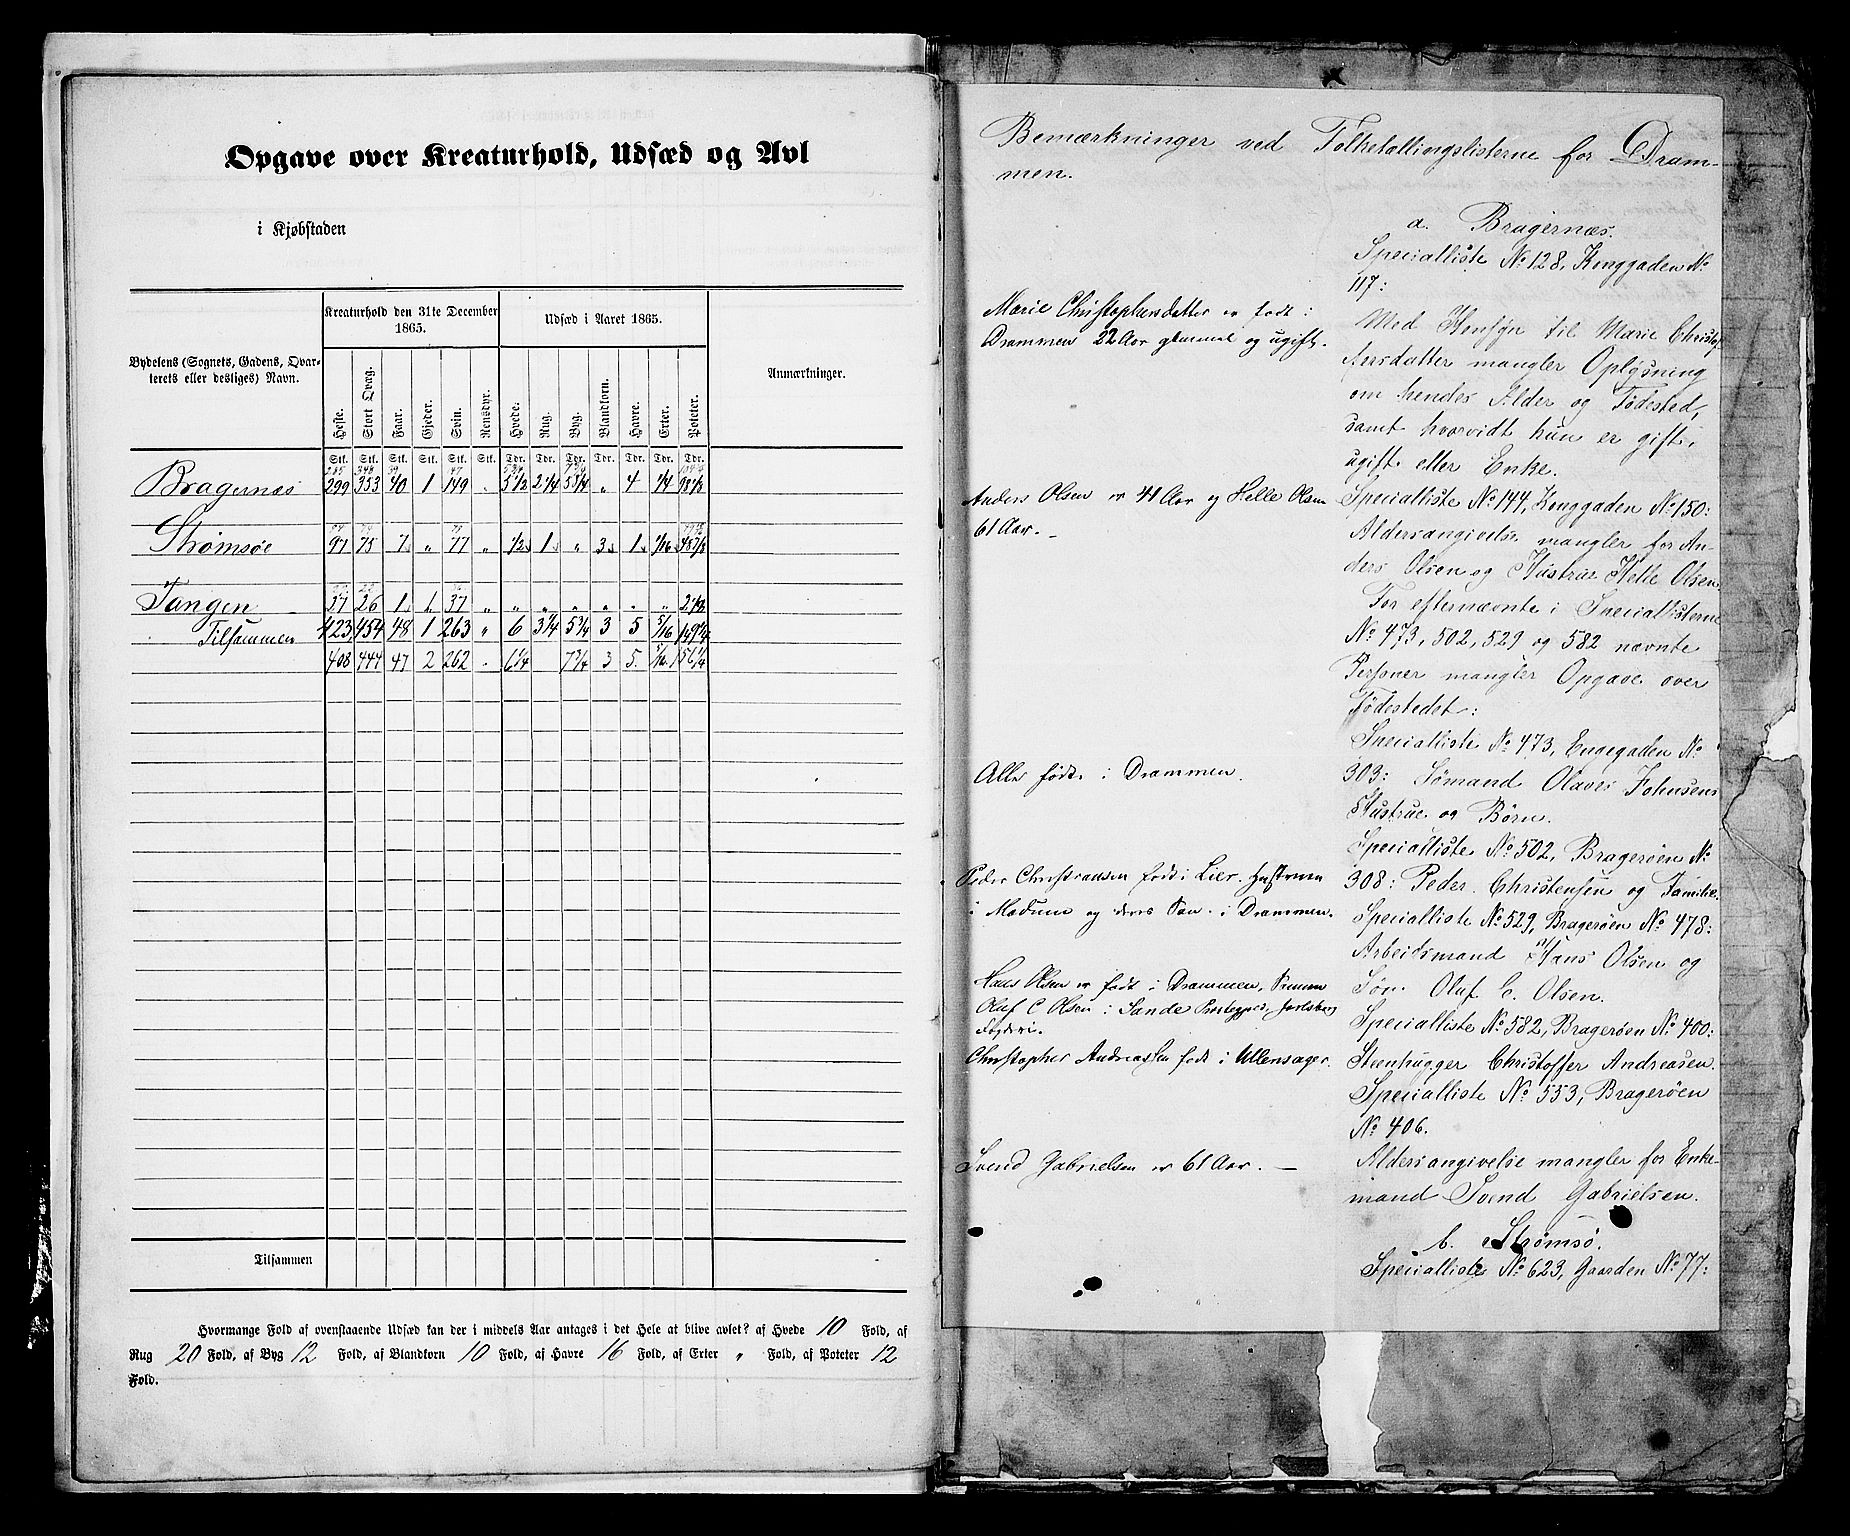 Opgave over Kreaturhold, Udsæd og Avl
i Kjøbstaden
Bydelens (Sognets, Gadens, Qvar-
terets eller desliges) Navn.
Kreaturhold den 31te December
1865.
Udsæd i Aaret 1865.
Anmærkninger.
Heste. Stort Qvæg. Faar. Gjeder. Svin. Rensdyr. Hvede. Rug. Byg. Blandkorn. Havre. Erter. Poteter.
Stk. Stk. Stk. Stk. Stk. Stk. Tdr. Tdr. Tdr. Tdr. Tdr. Tdr. Tdr.
Bragernæs 299 353 40 1 149 „ 5 1/2 2 1/4 5 3/4 „ 4 1/4 98 1/2
Strømsøe 97 75 7 „ 77 „ 1/2 1 „ 3 1 1/16 48 7/8
Tangen 27 26 1 1 37 „ „ „ „ „ „ „ 2 1/2
Tilsammen 423 454 48 1 263 „ 6 3 1/4 5 3/4 3 5 5/16 149 7/8
408 444 47 2 262 „ 6 1/4 7 3/4 3 5 5/16 156 1/4
Tilsammen
Hvormange Fold af ovenstaaende Udsæd kan der i middels Aar antages i det Hele at blive avlet? af Hvede 10 Fold, af
Rug 20 Fold, af Byg 12 Fold, af Blandkorn 10 Fold, af Havre 16 Fold, af Erter „ Fold, af Poteter 12
Fold.
Bemærkninger ved Folketællingslisterne for Dram-
men.
a. Bragernæs.
Specialliste No 128, Konggaden No
117:
Marie Christophersdatter er født i
Drammen 22 Aar gammel og ugift.
Med Hensyn til Marie Christof-
fersdatter mangler Oplysning
om hendes Alder og Fødested,
samt hvorvidt hun er gift,
ugift eller Enke.
Anders Olsen er 41 Aar og Helle Olsen
61 Aar. –
Specialliste No 144, Konggaden No 150:
Aldersangivelse mangler for An-
ders Olsen og Hustrue Helle Olsen.
For efternævnte i Speciallisterne
No 473, 502, 529 og 582 nævnte
Personer mangler Opgave over
Fødestedet:
Specialliste No 473, Engegaden No
Alle født i Drammen.
303: Sømand Olaves Johnsens
Hustrue og Børn.
Specialliste No 502, Bragerøen No
Peder Christiansen født i Lier. Hustruen
i Modum og deres Søn i Drammen.
308: Peder Christensen og Familie.
Specialliste No 529, Bragerøen No 478:
Arbeidsmand Hans Olsen og
Søn Oluf C. Olsen.
Hans Olsen er født i Drammen, Sønnen
Oluf C Olsen i Sande Præstegjeld, Jarlsberg
Fogderi.
Specialliste No 582, Bragerøen No 400:
Christopher Andreassen født i Ullensager.
Steenhugger Christoffer Andreasen.
Specialliste No 553, Bragerøen
No 406.
Svend Gabrielsen er 61 Aar. –
Aldersangivelse mangler for Enke-
mand Svend Gabrielsen.
b. Strømsø.
Specialliste No 623, Gaarden No 77: